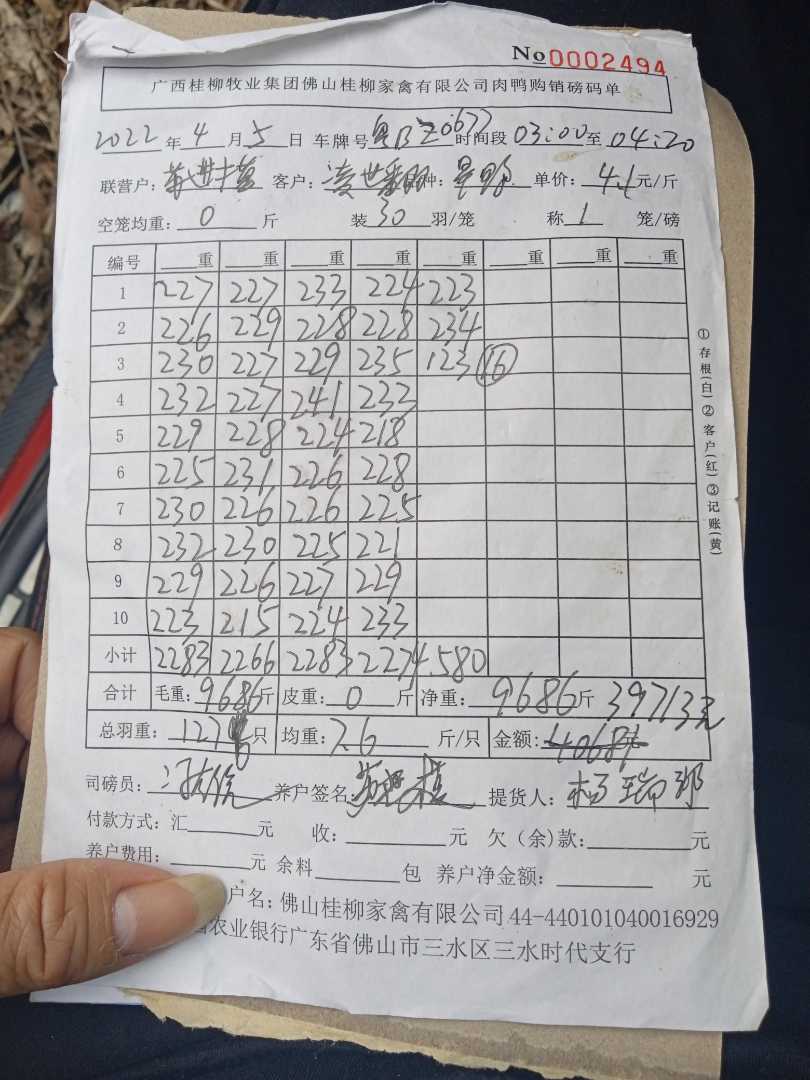 No 0002494
广西桂柳牧业集团佛山桂柳家禽有限公司肉鸭购销磅码单
2022年4月5日 车牌号 粤BZ0677 时间段 03:00至 04:20
联营户: 客户: 种: 单价: 4.1元/斤
空笼均重: 0 斤 装30羽/笼 称1笼/磅
编号 重 重 重 重 重 重 重 重
1 227 227 233 224 223
2 226 229 228 228 234
3 230 227 229 235 123 16
4 232 227 241 233
5 229 228 224 218
6 225 231 226 228
7 230 226 226 225
8 232 230 225 221
9 229 226 227 229
10 223 215 224 233
小计 2283 2266 2283 2274 580
合计 毛重:9686斤 皮重:0斤 净重:9686斤 39713元
总羽重:1276只 均重:7.6斤/只 金额:
司磅员: 养户签名: 提货人:杨瑞邦
付款方式:汇 元 收: 元 欠(余)款: 元
养户费用: 元 余料 包 养户净金额: 元
户名:佛山桂柳家禽有限公司 44-440101040016929
农业银行广东省佛山市三水区三水时代支行
①存根(白)②客户(红)③记账(黄)